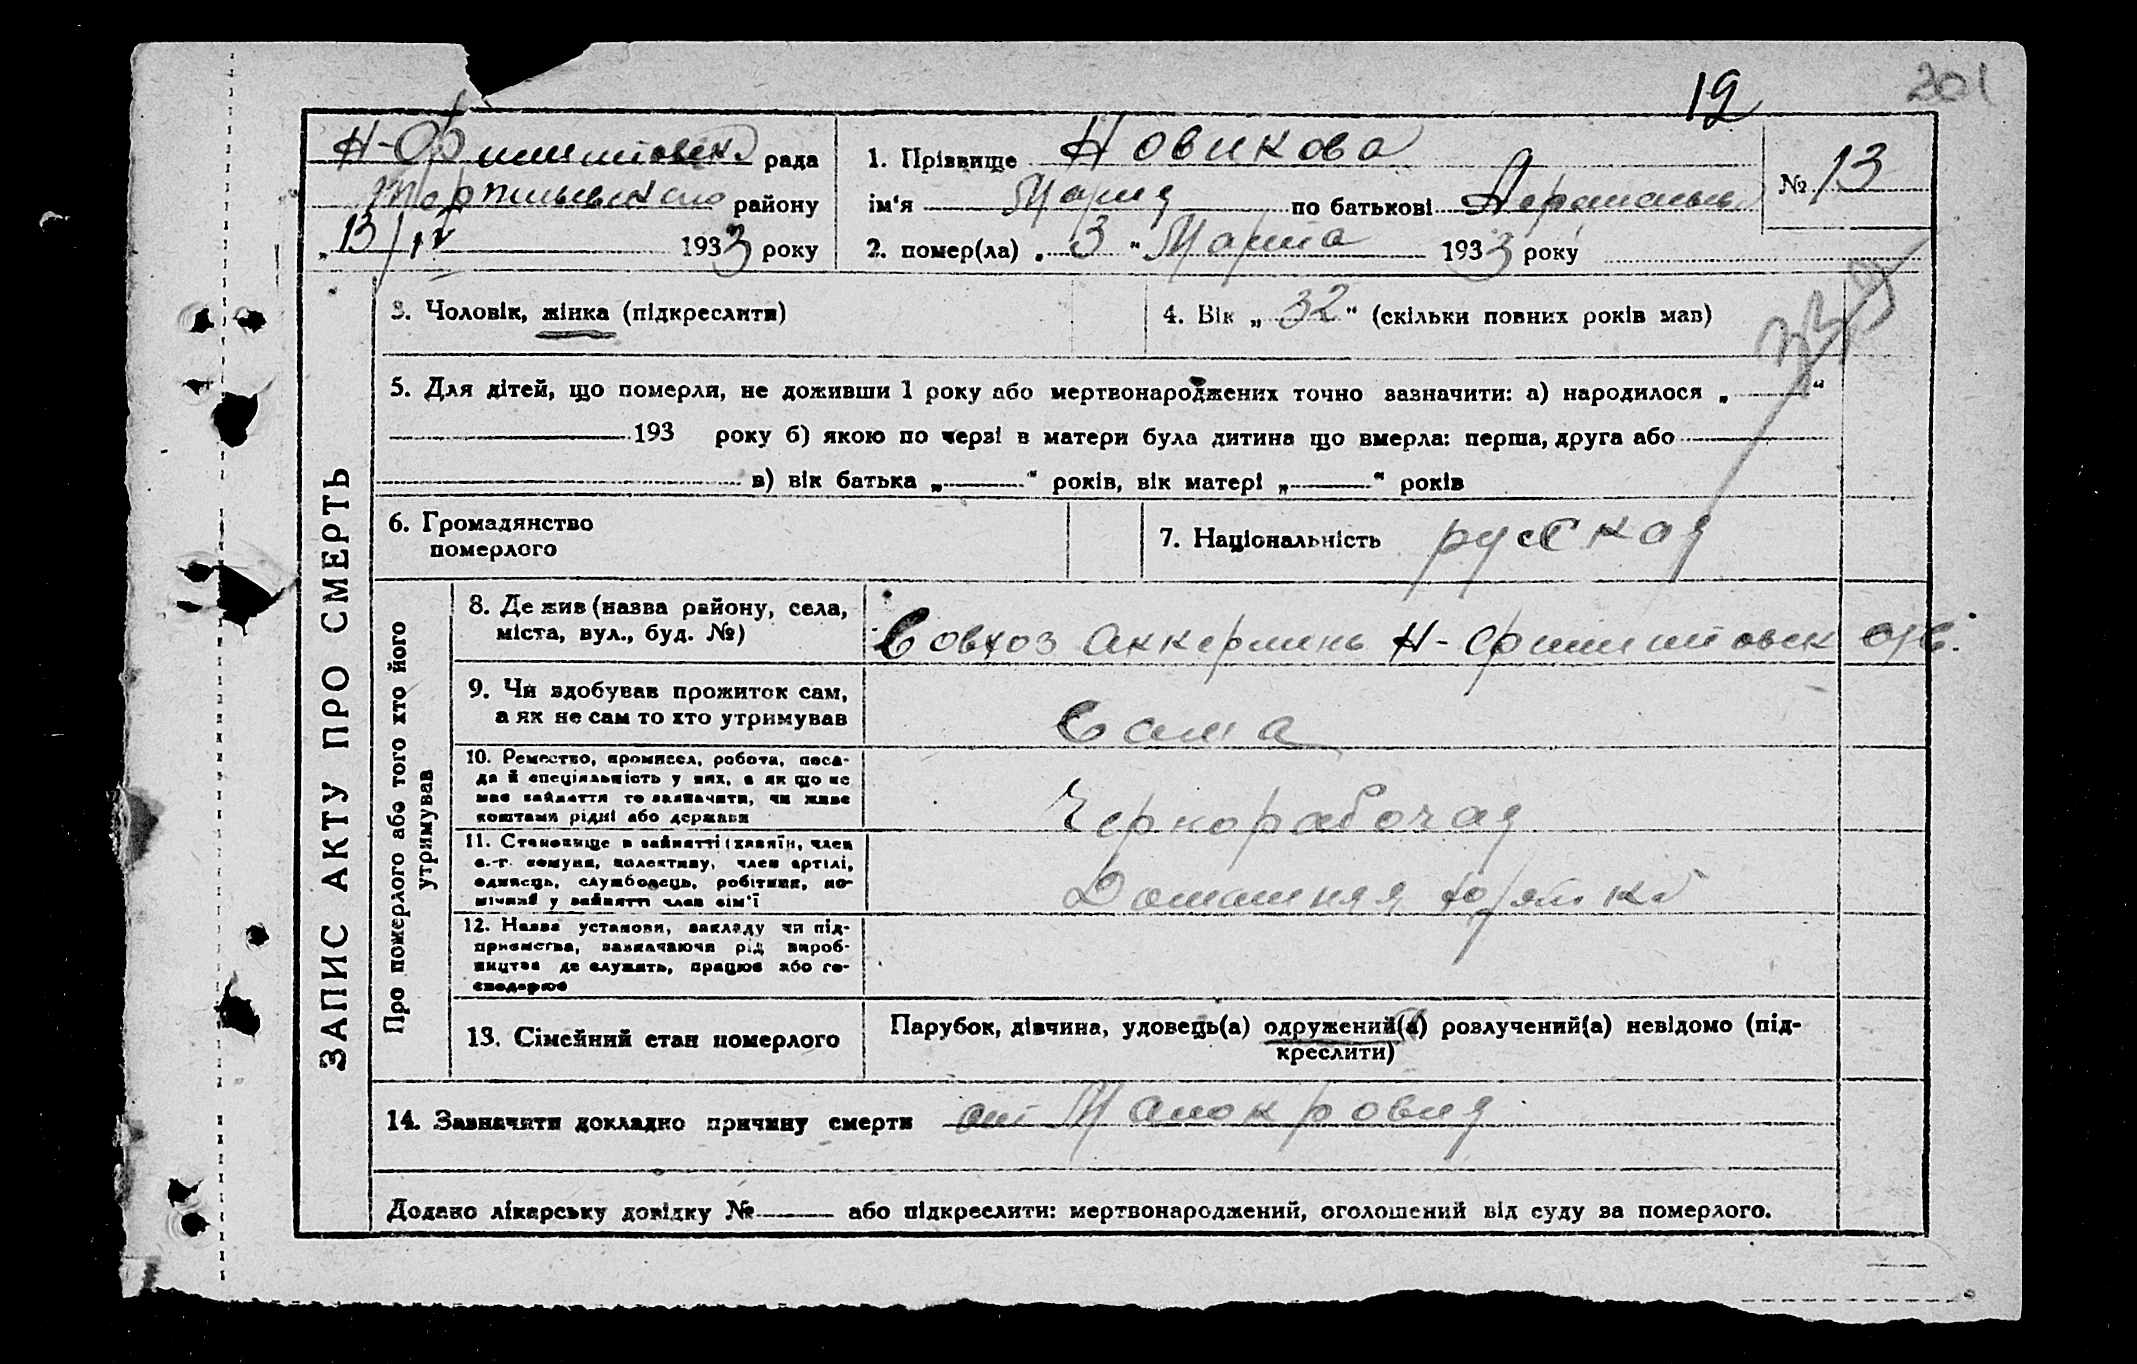 19
201
рада
1. Прізвище Новикова
№ 13
району
ім'я Мария по батькові
13/IV 1933 року
2. помер(ла) „ 3 " Марта 1933 року
3. Чоловік, жінка (підкреслити)
4. Вік „ 32 " (скільки повних років мав)
5. Для дітей, що померли, не доживши 1 року або мертвонароджених точно зазначити: а) народилося „ "
193 року б) якою по черзі в матери була дитина що вмерла: перша, друга або
в) вік батька „ " років, вік матері „ " років
6. Громадянство
померлого
7. Національність русская
ЗАПИС АКТУ ПРО СМЕРТЬ
Про померлого або того хто його
утримував
8. Де жив (назва району, села,
міста, вул., буд. №)
Совхоз Аккермень
9. Чи здобував прожиток сам,
а як не сам то хто утримував
Сама
10. Ремество, промисел, робота, поса-
да й спеціяльність у них, а як що не
має заняття то зазначити, чи живе
коштами рідні або держави
Чернорабочая
11. Становище в занятті (хазяїн, член
с.-г. комуни, колективу, член артілі,
одинець, службовець, робітник, по-
мічний у занятті член сім'ї
Домашняя
12. Назва установи, закладу чи під-
приємства, зазначаючи рід вироб-
ництва де служить, працює або го-
сподарює
13. Сімейний стан померлого
Парубок, дівчина, удовець(а) одружений(а) розлучений(а) невідомо (під-
креслити)
14. Зазначити докладно причину смерти от Малокровия
Додано лікарську довідку № або підкреслити: мертвонароджений, оголошений від суду за померлого.